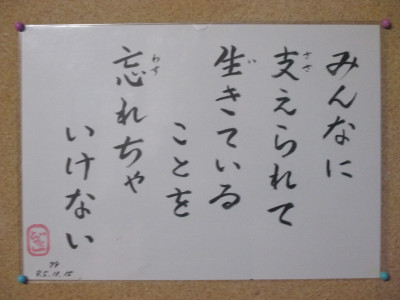 みんなに
支えられて
生きている
ことを
忘れちゃ
いけない